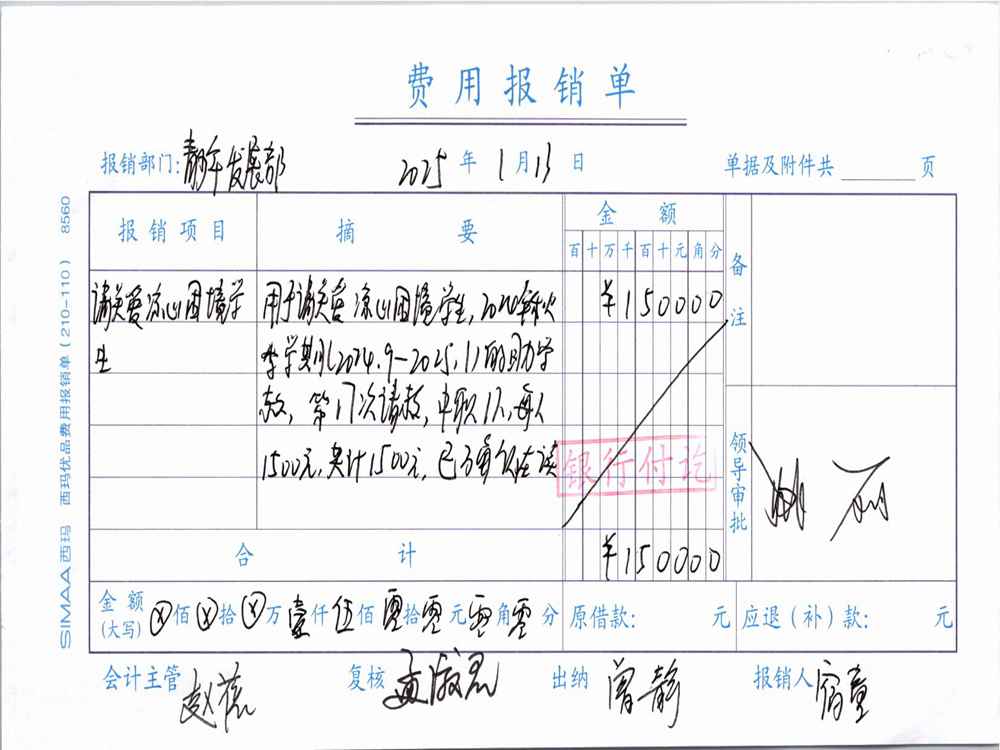 费用报销单
报销部门: 青年发展部 2025年 1月13日 单据及附件共 页
报销项目 摘要 金额 备注
百十万千百十元角分
请关爱凉山困境学生
用于请关爱凉山困境学生, 2024年秋
季学期(2024.9-2025.1)的助学
款, 第17次请款, 中职1人, 每人
1500元, 共计1500元, 已
¥150000
银行付讫
领导审批
合计 ¥150000
金额(大写) ⊗佰⊗拾⊗万壹仟伍佰零拾零元零角零分 原借款: 元 应退(补)款: 元
会计主管 赵 复核 孟淑君 出纳 曾静 报销人 宿童
SIMAA西玛 西玛优品费用报销单(210-110) 8560